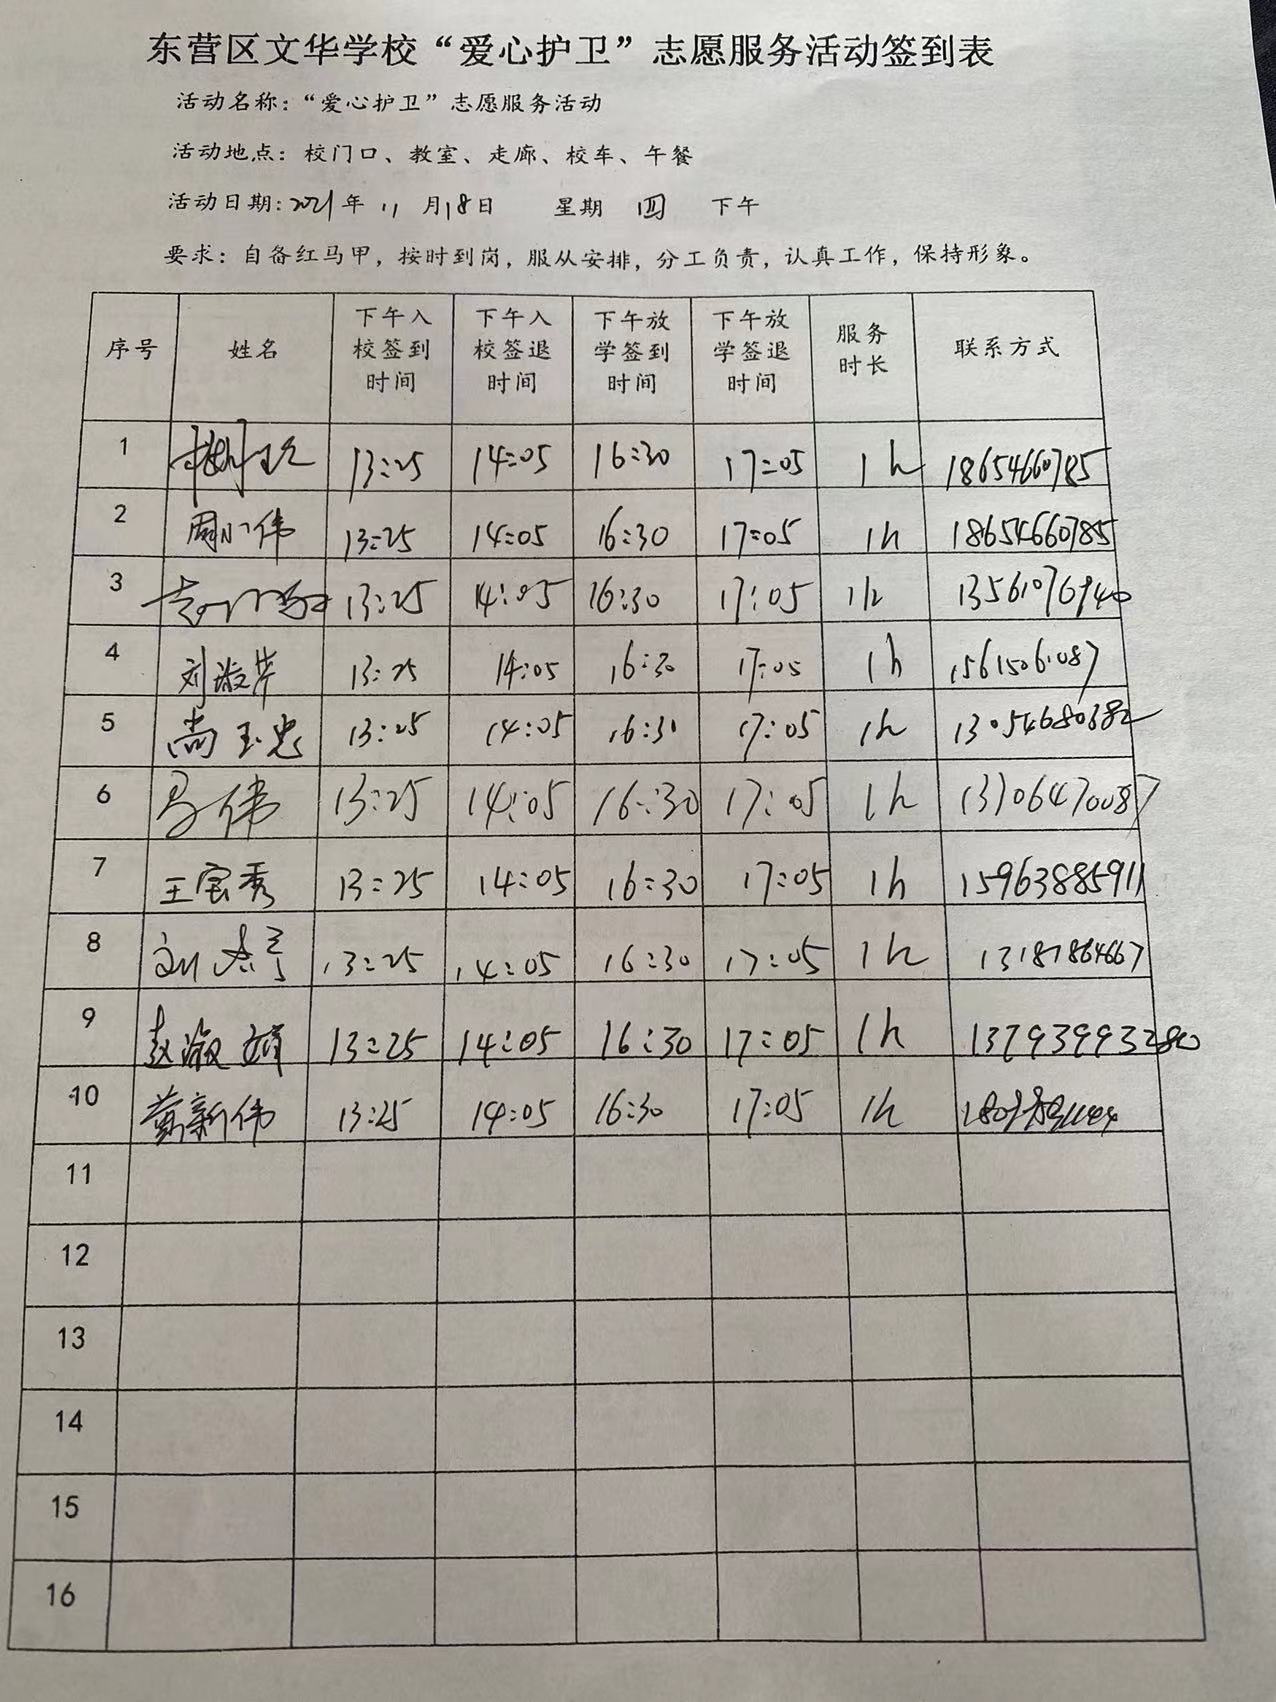 东营区文华学校“爱心护卫”志愿服务活动签到表
活动名称：“爱心护卫”志愿服务活动
活动地点：校门口、教室、走廊、校车、午餐
活动日期：2021年 11 月18日 星期 四 下午
要求：自备红马甲，按时到岗，服从安排，分工负责，认真工作，保持形象。
序号 姓名 下午入校签到时间 下午入校签退时间 下午放学签到时间 下午放学签退时间 服务时长 联系方式
1 13:25 14:05 16:30 17:05 1h 18654660785
2 周小伟 13:25 14:05 16:30 17:05 1h 18654660785
3 13:25 14:05 16:30 17:05 1h 13561076940
4 刘淑芹 13:25 14:05 16:30 17:05 1h 15615061087
5 尚玉忠 13:25 14:05 16:30 17:05 1h 13054680382
6 马伟 13:25 14:05 16:30 17:05 1h 13706470087
7 王宝秀 13:25 14:05 16:30 17:05 1h 15963885911
8 13:25 14:05 16:30 17:05 1h 13181864667
9 赵淑婧 13:25 14:05 16:30 17:05 1h
10 黄新伟 13:25 14:05 16:30 17:05 1h
11
12
13
14
15
16